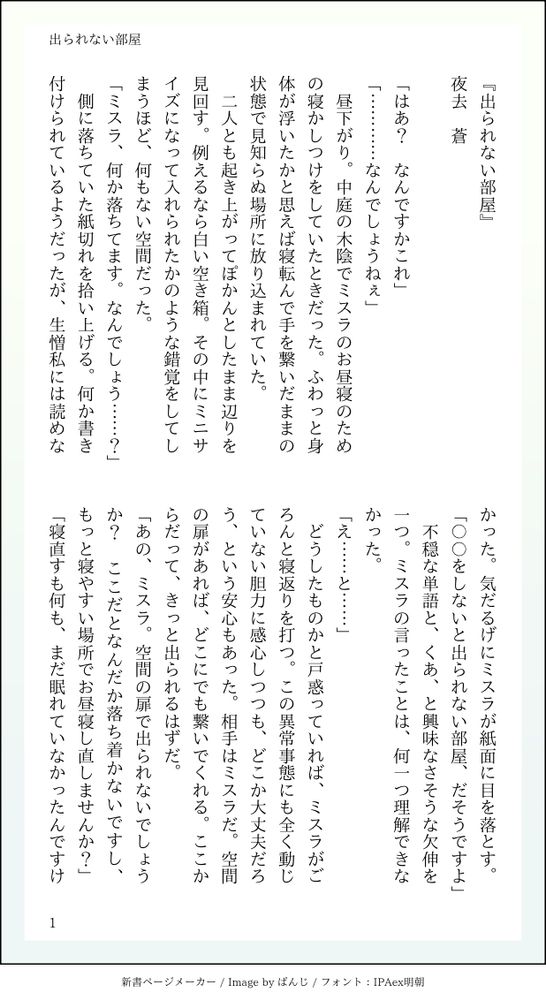 出られない部屋
『出られない部屋』
夜去　蒼
「はあ？　なんですかこれ」
「…………なんでしょうねぇ」
　昼下がり。中庭の木陰でミスラのお昼寝のため
の寝かしつけをしていたときだった。ふわっと身
体が浮いたかと思えば寝転んで手を繋いだままの
状態で見知らぬ場所に放り込まれていた。
　二人とも起き上がってぽかんとしたまま辺りを
見回す。例えるなら白い空き箱。その中にミニサ
イズになって入れられたかのような錯覚をしてし
まうほど、何もない空間だった。
「ミスラ、何か落ちてます。なんでしょう……？」
　側に落ちていた紙切れを拾い上げる。何か書き
付けられているようだったが、生憎私には読めな
かった。気だるげにミスラが紙面に目を落とす。
「〇〇をしないと出られない部屋、だそうですよ」
　不穏な単語と、くあ、と興味なさそうな欠伸を
一つ。ミスラの言ったことは、何一つ理解できな
かった。
「え……と……」
　どうしたものかと戸惑っていれば、ミスラがご
ろんと寝返りを打つ。この異常事態にも全く動じ
ていない胆力に感心しつつも、どこか大丈夫だろ
う、という安心もあった。相手はミスラだ。空間
の扉があれば、どこにでも繋いでくれる。ここか
らだって、きっと出られるはずだ。
「あの、ミスラ。空間の扉で出られないでしょう
か？　ここだとなんだか落ち着かないですし、
もっと寝やすい場所でお昼寝し直しませんか？」
「寝直すも何も、まだ眠れていなかったんですけ
1
新書ページメーカー / Image by ぱんじ / フォント：IPAex明朝